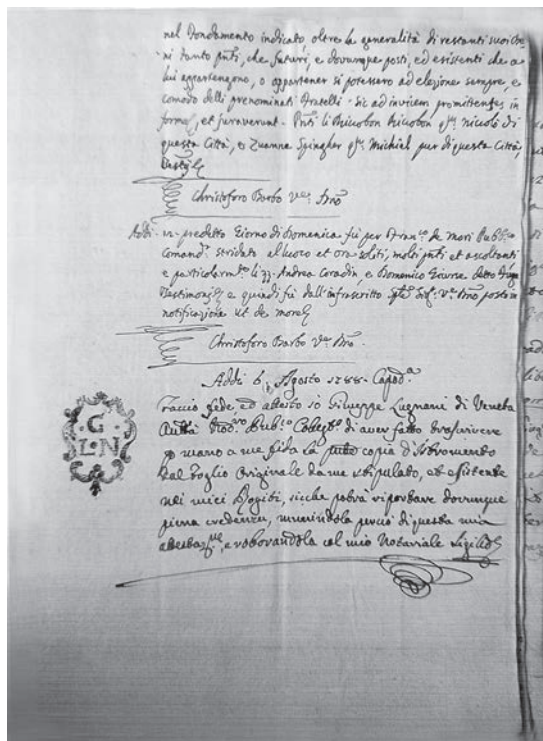 nel Fondamento indicato, oltre la generalità di restanti suoi Be-
ni tanto pnti, che futuri, e dovunque posti, ed esistenti che a
lui appartengono, o appartener si potessero ad elezione sempre, e
comodo delli prenominati Fratelli. Sic ad invicem promittentes in
forma, et juraverunt. Pnti li Bricobon Bricobon qm. Nicolò di
questa Città, e Zuanne Spingher qm. Michiel pur di questa Città,
Christoforo Barbo
Addi predetto Giorno di Domenica fù per de mori Pubb.co
Comand.r stridato al luoco et ora soliti, molti pnti et ascoltanti
e particolarm.te li Andrea Coradin, e Domenico detto
Testimonj e quindi fù dall'infrascritto posta in
notificazione ut de more
Christoforo Barbo
Addi 6 Agosto 1788 Capod.a
Faccio fede, ed attesto io Giuseppe Lugnani di Veneta
Autt.à Nod.ro Pub.co Colleg.to di aver fatto trascrivere
mano a me fida la copia d'Istromento
dal Foglio Originale da me stipulato, ed esistente
nei miei Rogiti, sicche potrà riportare dovunque
piena credenza, munindola perciò di questa mia
attestaz.ne, e roborandola col mio Notariale
G
L.N